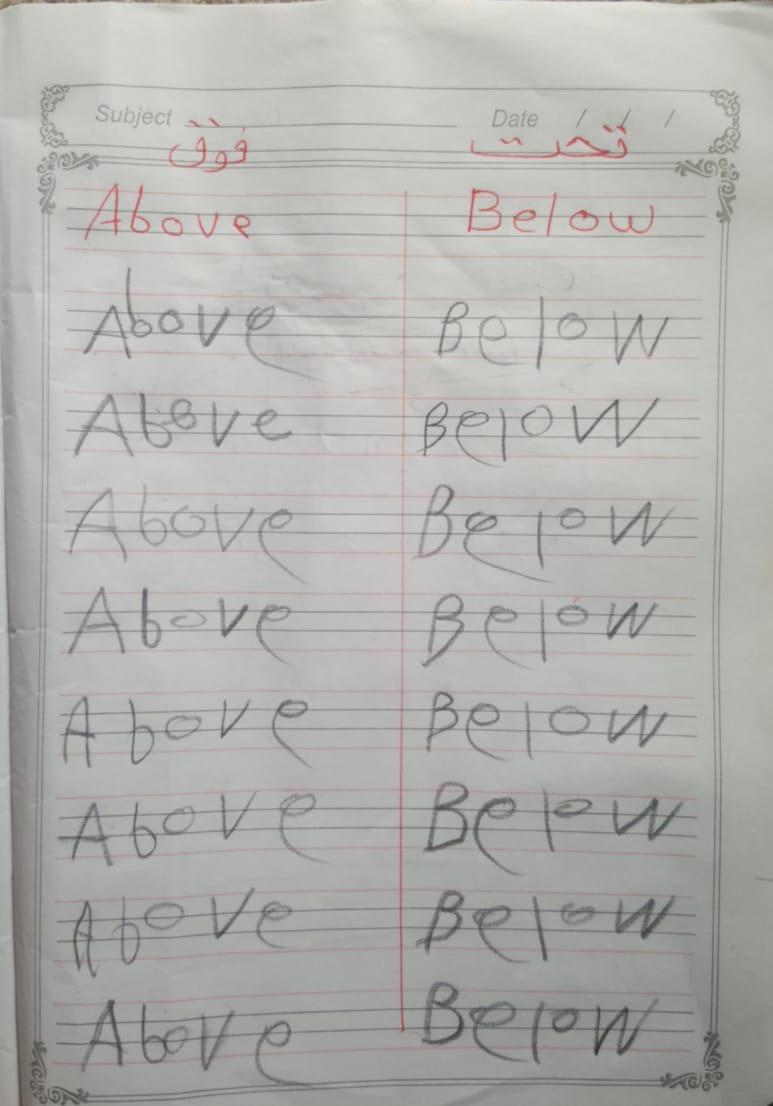 Subject Date / / /
فوق تحت
Above Below
Above Below
Above Below
Above Below
Above Below
Above Below
Above Below
Above Below
Above Below